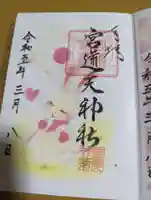 奉拝
宮道天神社
令和五年三月八日